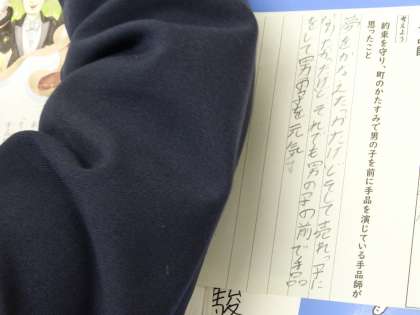 考えよう
約束を守り、町のかたすみで男の子を前に手品を演じている手品師が
思ったこと
夢をかなえたかったけどそして売れっ子に
なりたかったけどそれでも男の子の前で手品
をして男の子を元気
駿